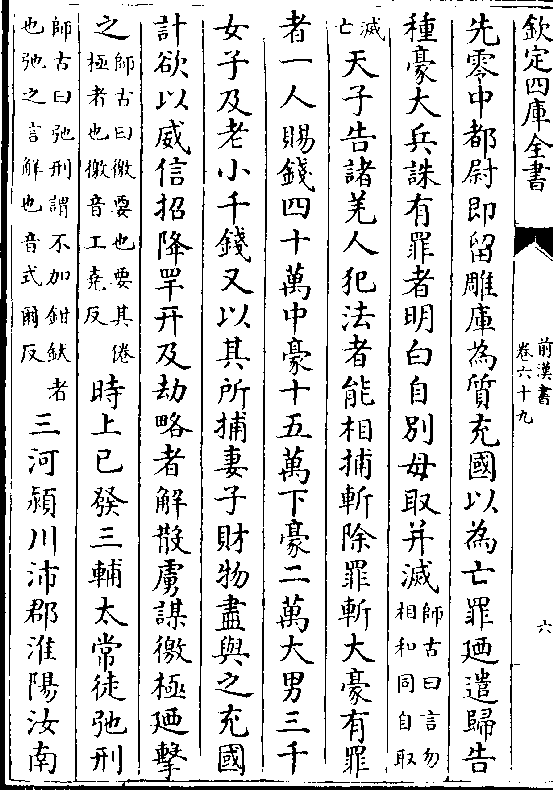 欽定四庫全書
前漢書
卷六十九
六
先零中都尉即留雕庫為質充國以為亡罪廼遣歸告
種豪大兵誅有罪者明白自別毋取并滅師古曰言勿
相和同自取
滅
亡天子告諸羌人犯法者能相捕斬除罪斬大豪有罪
者一人賜錢四十萬中豪十五萬下豪二萬大男三千
女子及老小千錢又以其所捕妻子財物盡與之充國
計欲以威信招降罕幵及劫略者解散虜謀徼極廼擊
之師古曰徼要也要其倦
極者也徼音工堯反
時上已發三輔太常徒弛刑
師古曰弛刑謂不加鉗釱者
也弛之言解也音式爾反
三河潁川沛郡淮陽汝南